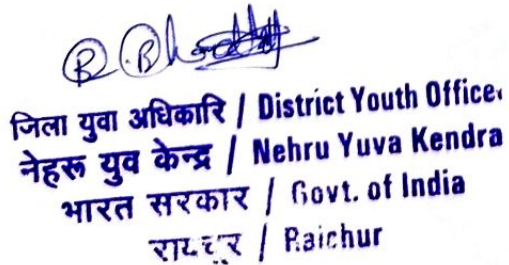 जिला युवा अधिकारि / District Youth Office
नेहरू युव केन्द्र / Nehru Yuva Kendra
भारत सरकार / Govt. of India
रायचूर / Raichur